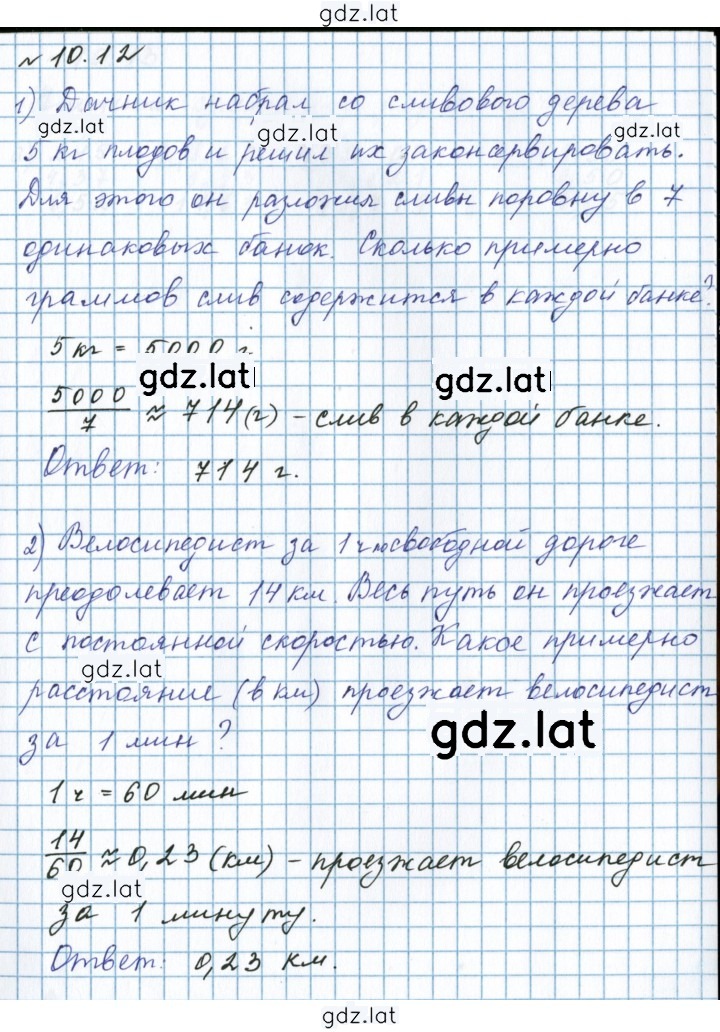 gdz.lat
№ 10.12
1) Дачник набрал со сливового дерева
gdz.lat gdz.lat gdz.lat
5 кг плодов и решил их законсервировать.
Для этого он разложил сливы поровну в 7
одинаковых банок. Сколько примерно
граммов слив содержится в каждой банке?
5 кг = 5000 г
gdz.lat gdz.lat
5000/7 ≈ 714 (г) – слив в каждой банке.
Ответ: 714 г.
2) Велосипедист за 1 ч по свободной дороге
преодолевает 14 км. Весь путь он проезжает
с постоянной скоростью. Какое примерно
gdz.lat
расстояние (в км) проезжает велосипедист
за 1 мин?
gdz.lat
1 ч = 60 мин
14/60 ≈ 0,23 (км) – проезжает велосипедист
gdz.lat
за 1 минуту.
Ответ: 0,23 км.
gdz.lat